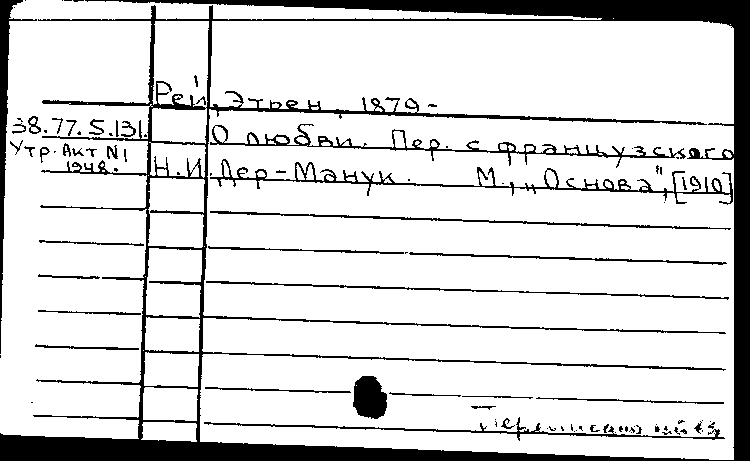 Рей, Этьен, 1879-
38.77.5.131. О любви. Пер. с французского
Утр. Акт N1
1948.
Н.И. Дер-Манук. М., „Основа", [1910]